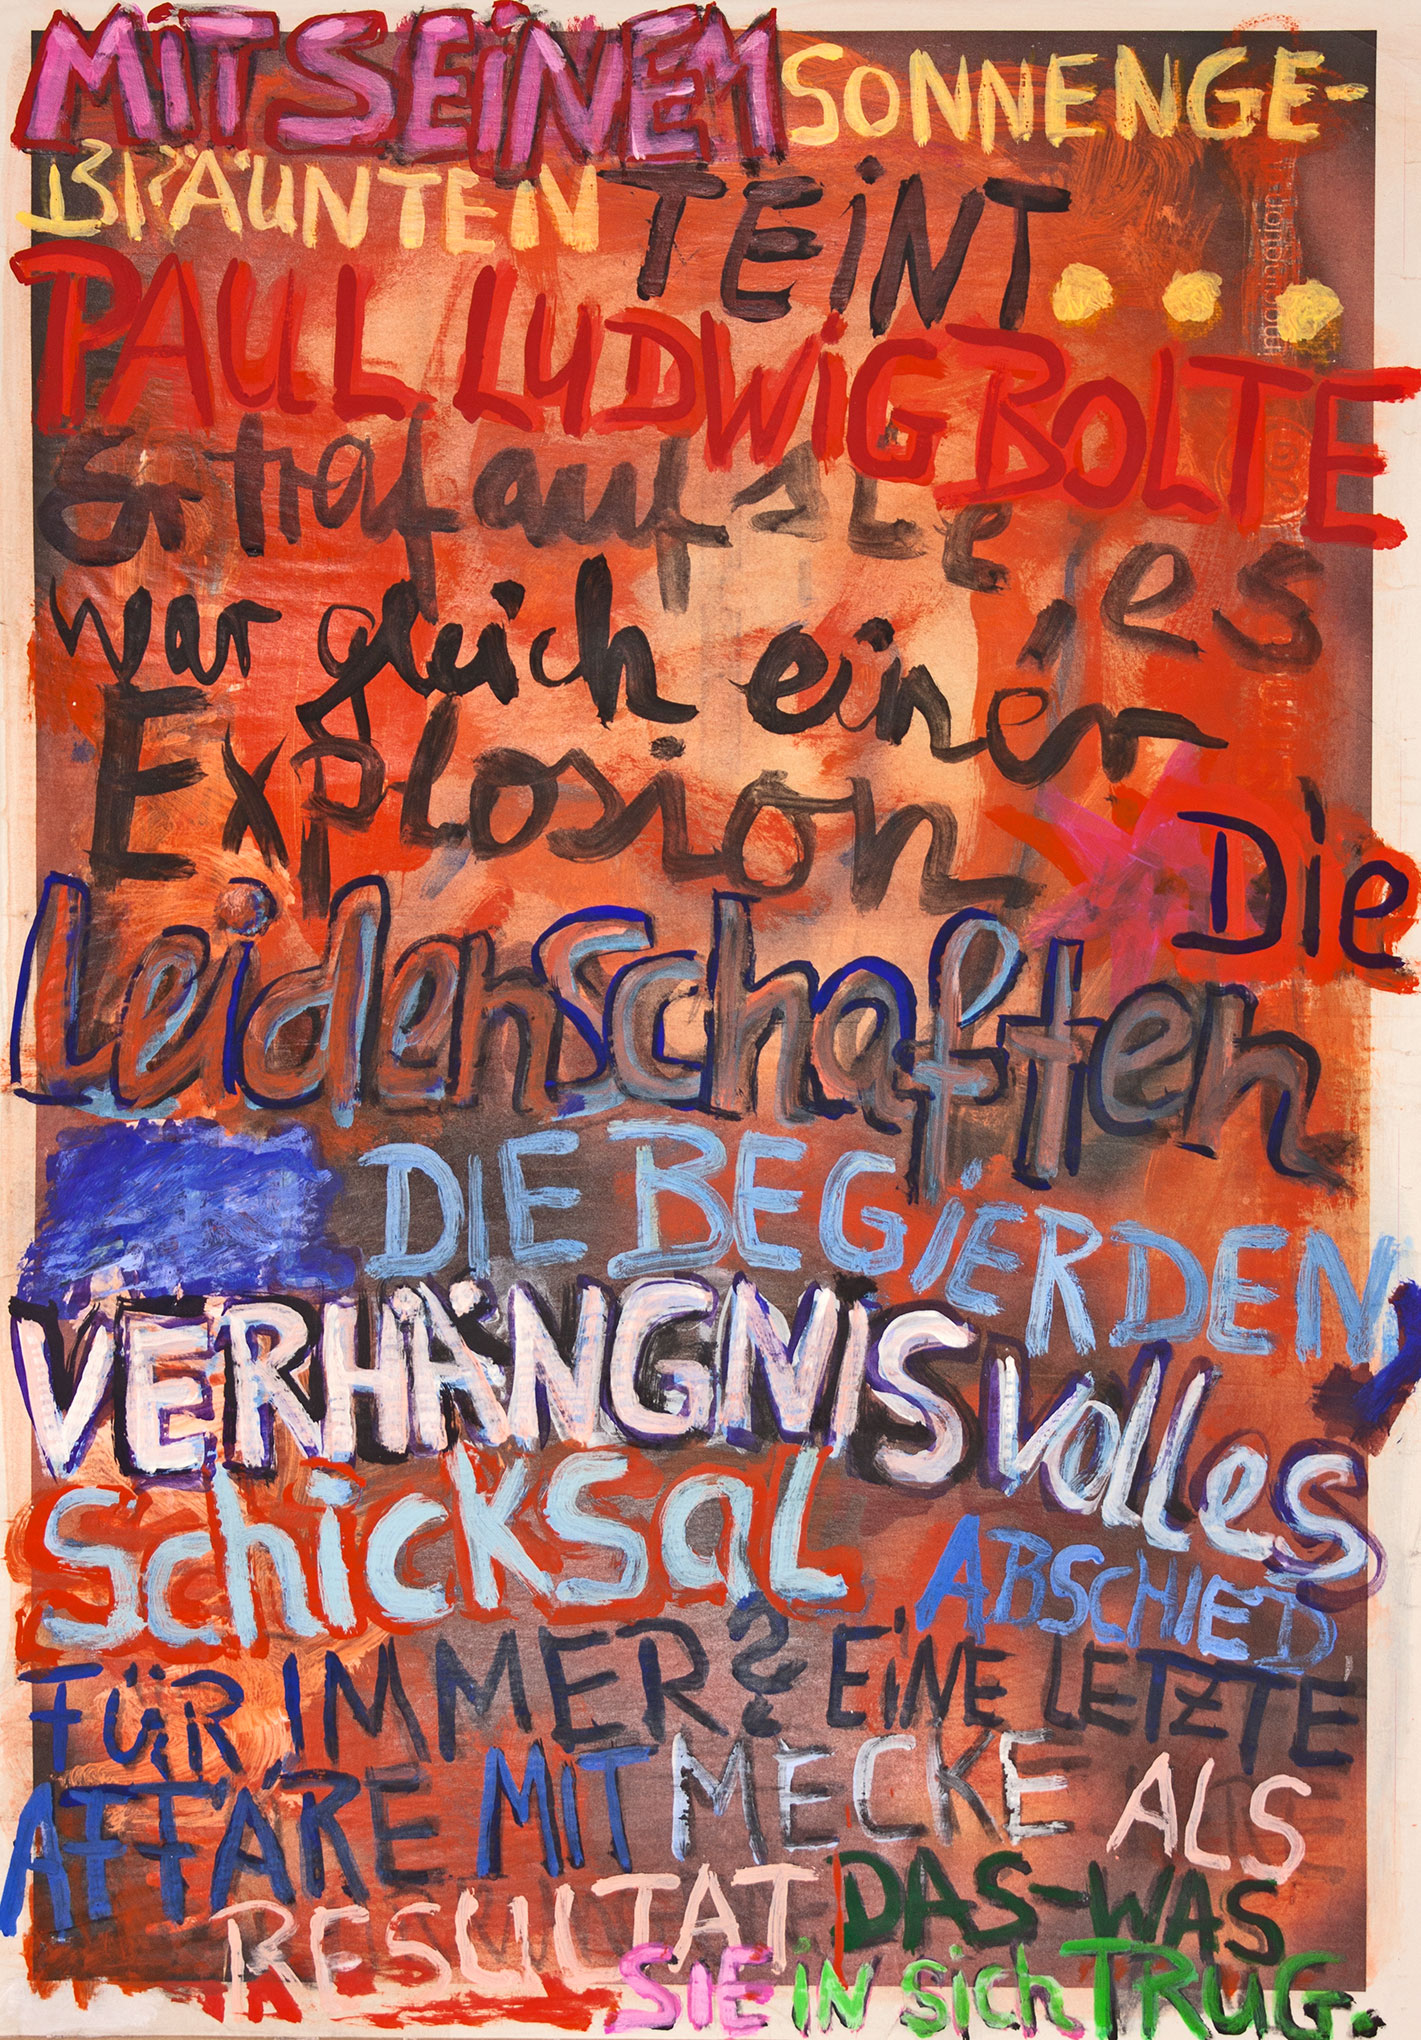 MiT SEiNEM SONNENGE-
BRÄUNTEN TEiNT...
PAUL LUDWiG BOLTE
Er traf auf sie, es
war gleich einer
Explosion Die
Leidenschaften
DIE BEGiERDEN,
VERHÄNGNISvolles
Schicksal ABSCHIED
FÜR IMMER? EiNE LETZTE
AFFÄRE MIT MECKE ALS
RESULTAT DAS-WAS
SiE iN sich TRUG.